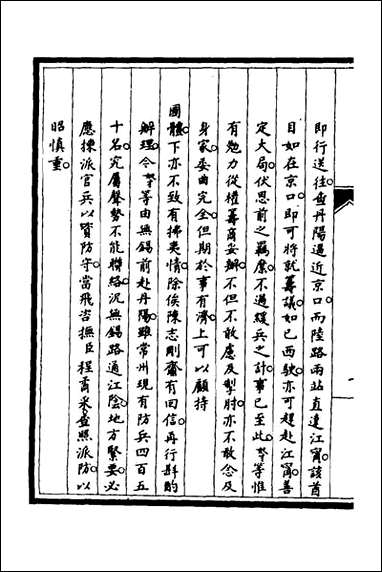 即行送往。盖丹陽逼近京口。而陸路兩站直達江甯。該酋
目如在京口。即可將就籌議。如已西駛。亦可趕赴江甯。善
定大局。伏思前之羈縻。不過緩兵之計。事已至此。奴等惟
有勉力從權籌商妥辦。不但不敢慮及掣肘。亦不敢念及
身家。委曲完全。但期於事有濟。上可以顧持
國體。下亦不致有拂夷情。除俟陳志剛齎有回信。再行斟酌
辦理。令奴等由無錫前赴丹陽。雖常州現有防兵四百五
十名。究屬聲勢不能聯絡。況無錫路通江陰。地方緊要。必
應揀派官兵以資防守。當飛咨撫臣程矞采查照派防。以
昭慎重。